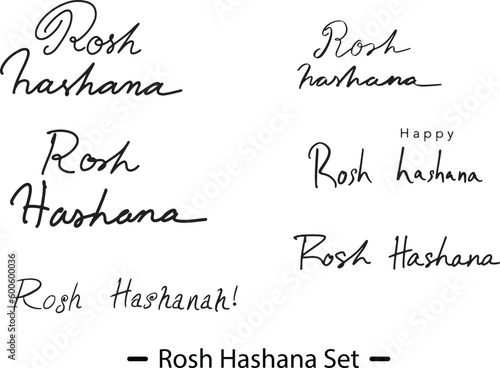 Rosh
hashana
Rosh
hashana
Rosh
Hashana
Happy
Rosh hashana
Rosh Hashana
Rosh Hashanah!
— Rosh Hashana Set —
Adobe Stock | #600600036